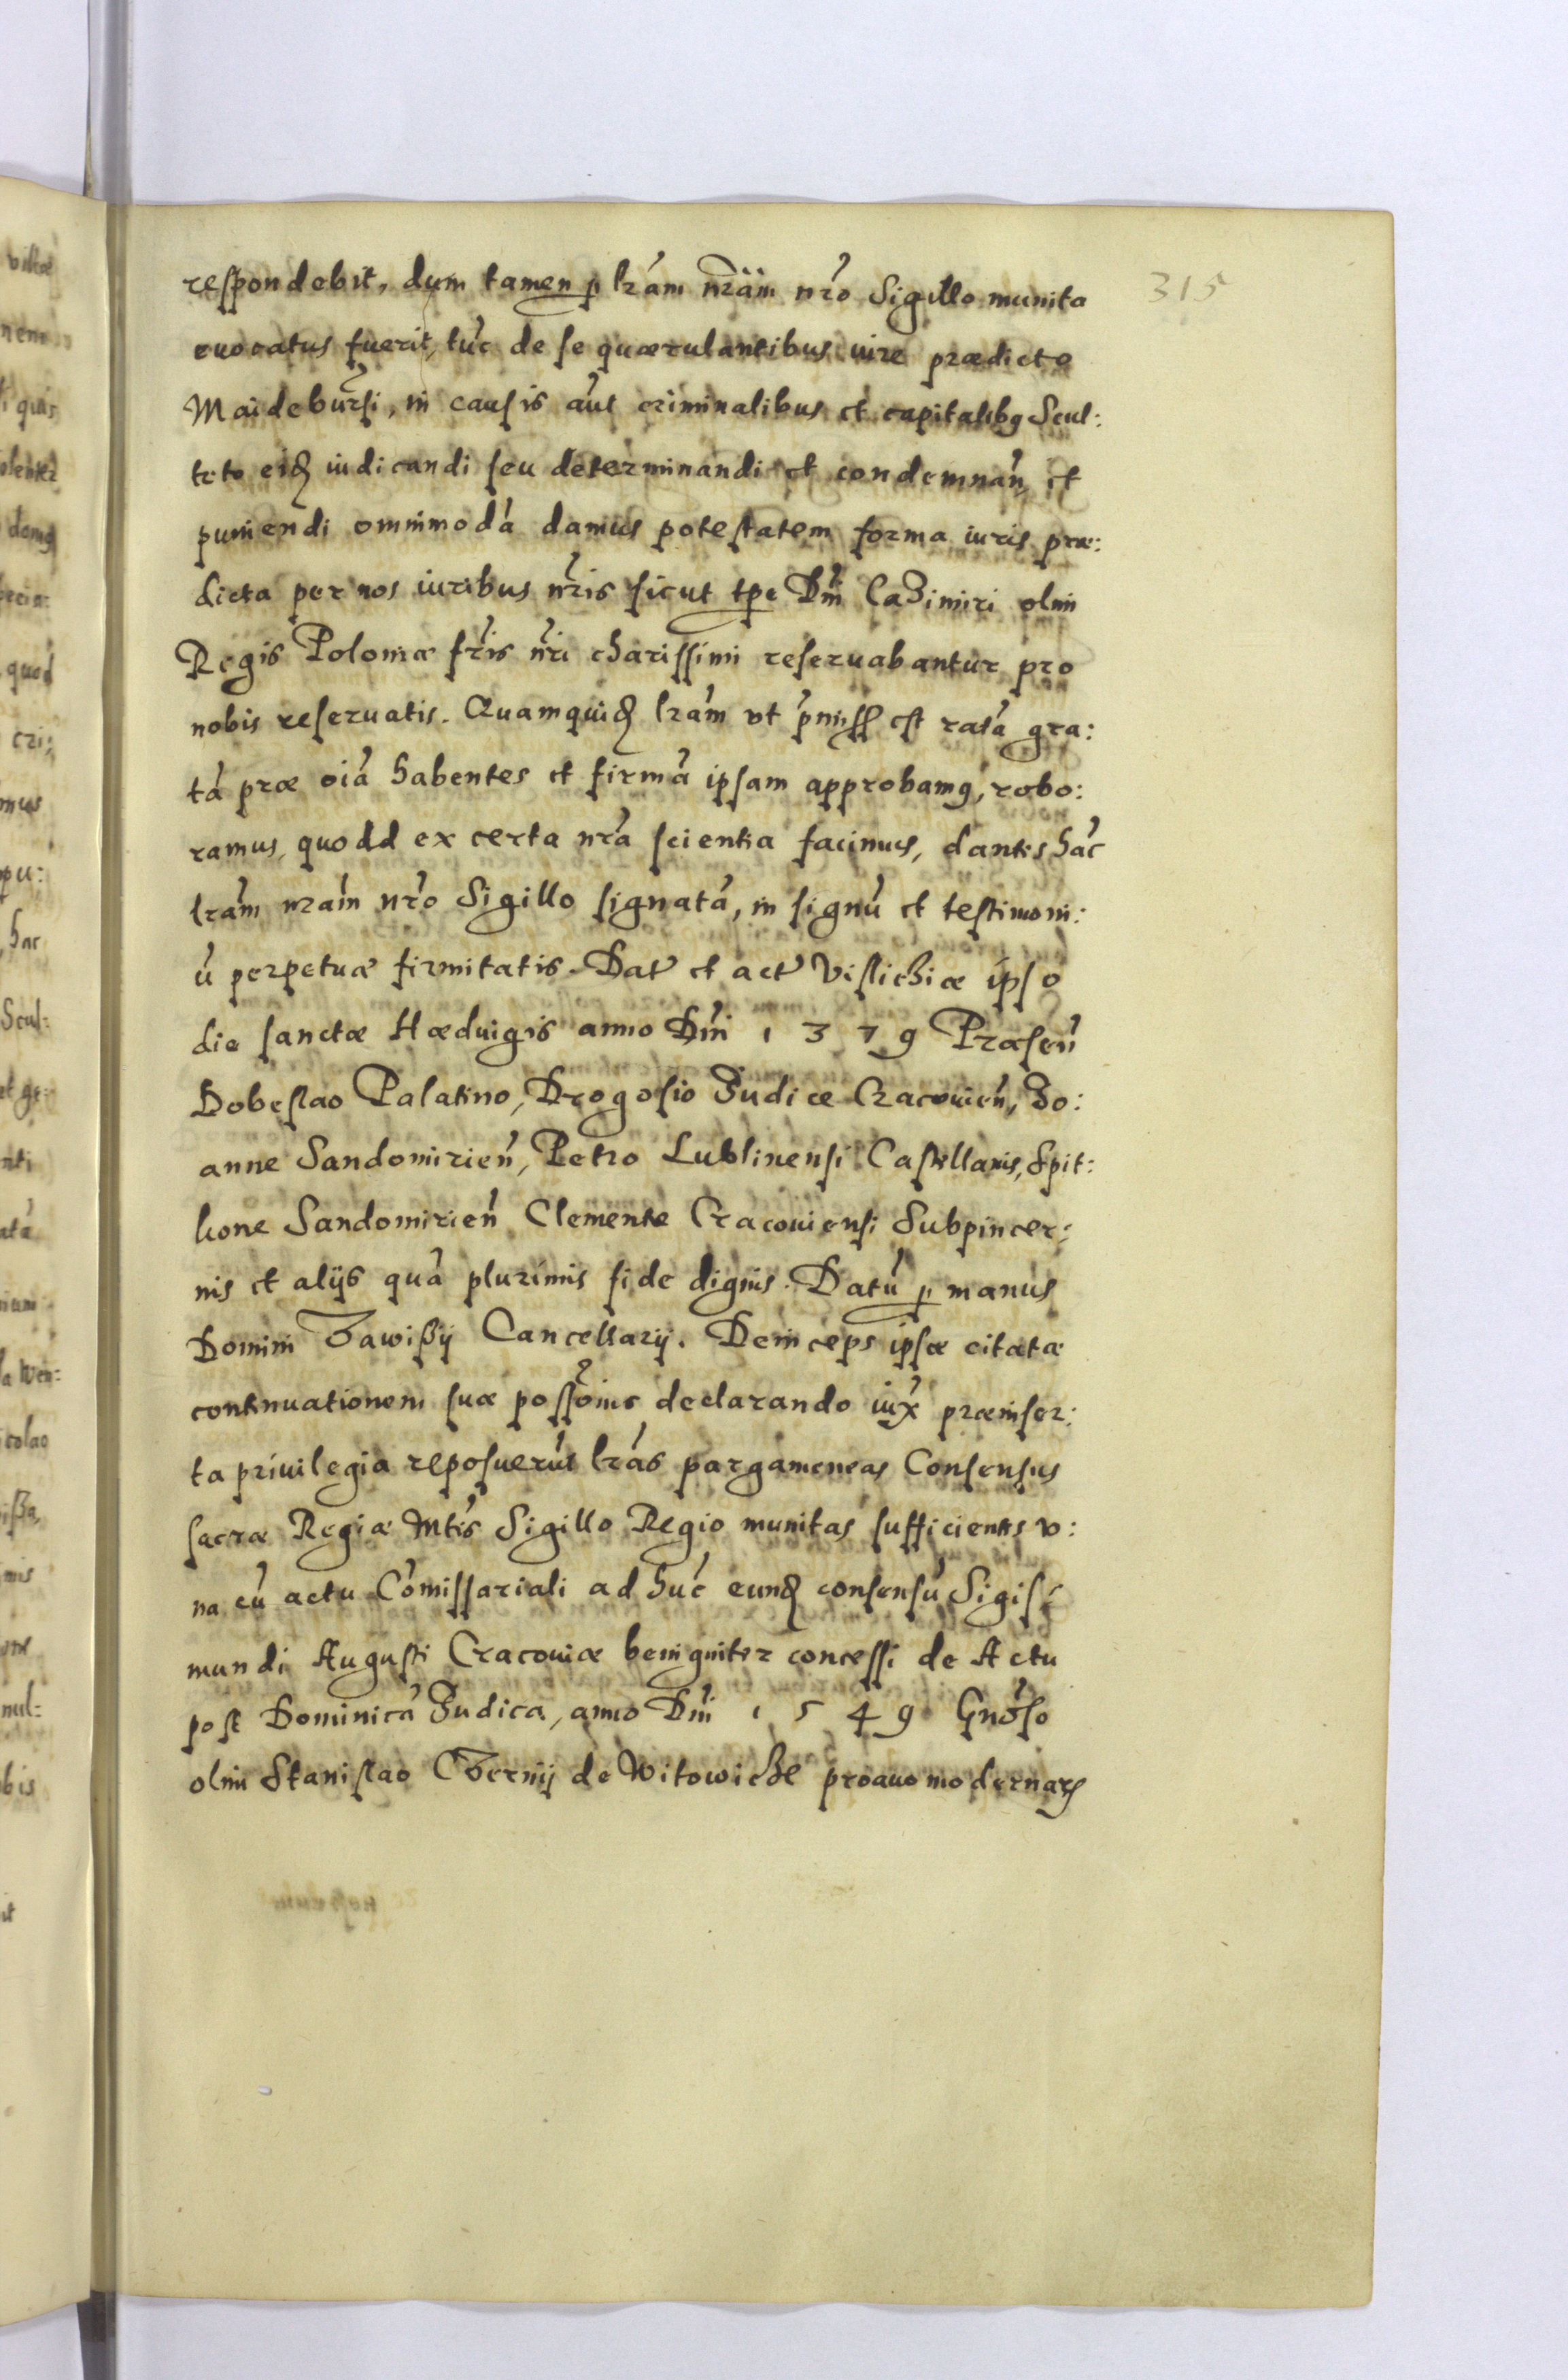 315
respondebit, dum tamen p lrám nrãm nr̃o Sigillo munita
euocatus fuerit, tuć de se quærulantibus iure prædicto
Maidebur̃si, in causis aút criminalibus et capitalibq Scul:
teto eidꝫ iudicandi seu determinandi et condemnań, et
puniendi omnimodá damus potestatem forma iuris præ:
dicta per nos iuribus nr̃is sicut tpe Dńi Cazimiri olim
Regis Poloniæ fr̃is nr̃i charissimi reseruabantur pro
nobis reseruatis. Quamquidꝫ lrám vt p̃miss est ratá gra:
tá præ oiá habentes et firmá ipsam approbamq, robo:
ramus, quodd ex certa nr̃a scientia facimus, dantes háć
lrám nrám nr̃o Sigillo signatá, in signú et testimoni:
ú perpetuæ firmitatis. Dat̃ et act̃ Vislichiæ ipso
die sanctæ Hæduigis anno Dńi 1379 Præseń
Dobeslao Palatino, Drogosio Judice Cracouień, Jo:
anne Sandomirień, Petro Lublinensi Castellanis, Spit:
kone Sandomirień Clemente Cracouiensi Subpincer:
nis et alijs quá plurimis fide dignis. Datú p manus
Domini Zawißij Cancellarij. Deinceps ipsæ citatæ
continuationem suæ poss̃oinis declarando iux̃ præinser:
ta priuilegia reposuerút lrás pargameneas Consensus
sacræ Regiæ Mt̃is Sigillo Regio munitas sufficientes v:
na cú actu Cómissariali ad huć eundꝫ consensú Sigis:
mundi Augusti Cracouiæ benigniter concessi de Actu
post Dominicá Judica, anno Dńi 1549 Gnóso
olim Stanislao Czernij de Witowicze proauo modernarꝫ